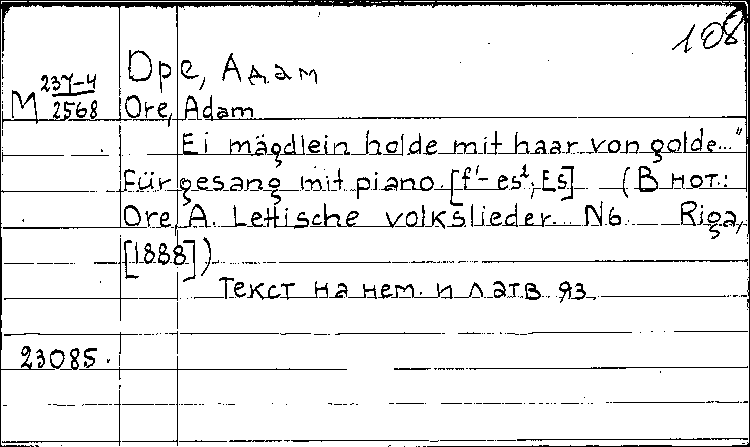 108
Оре, Адам
М 237-4/2568 Ore, Adam
Ei mägdlein holde mit haar von golde..."
Für gesang mit piano. [f¹-es², Es] (В нот.:
Ore, A. Lettische volkslieder. N6. Riga,
[1888])
Текст на нем. и латв. яз.
23085.